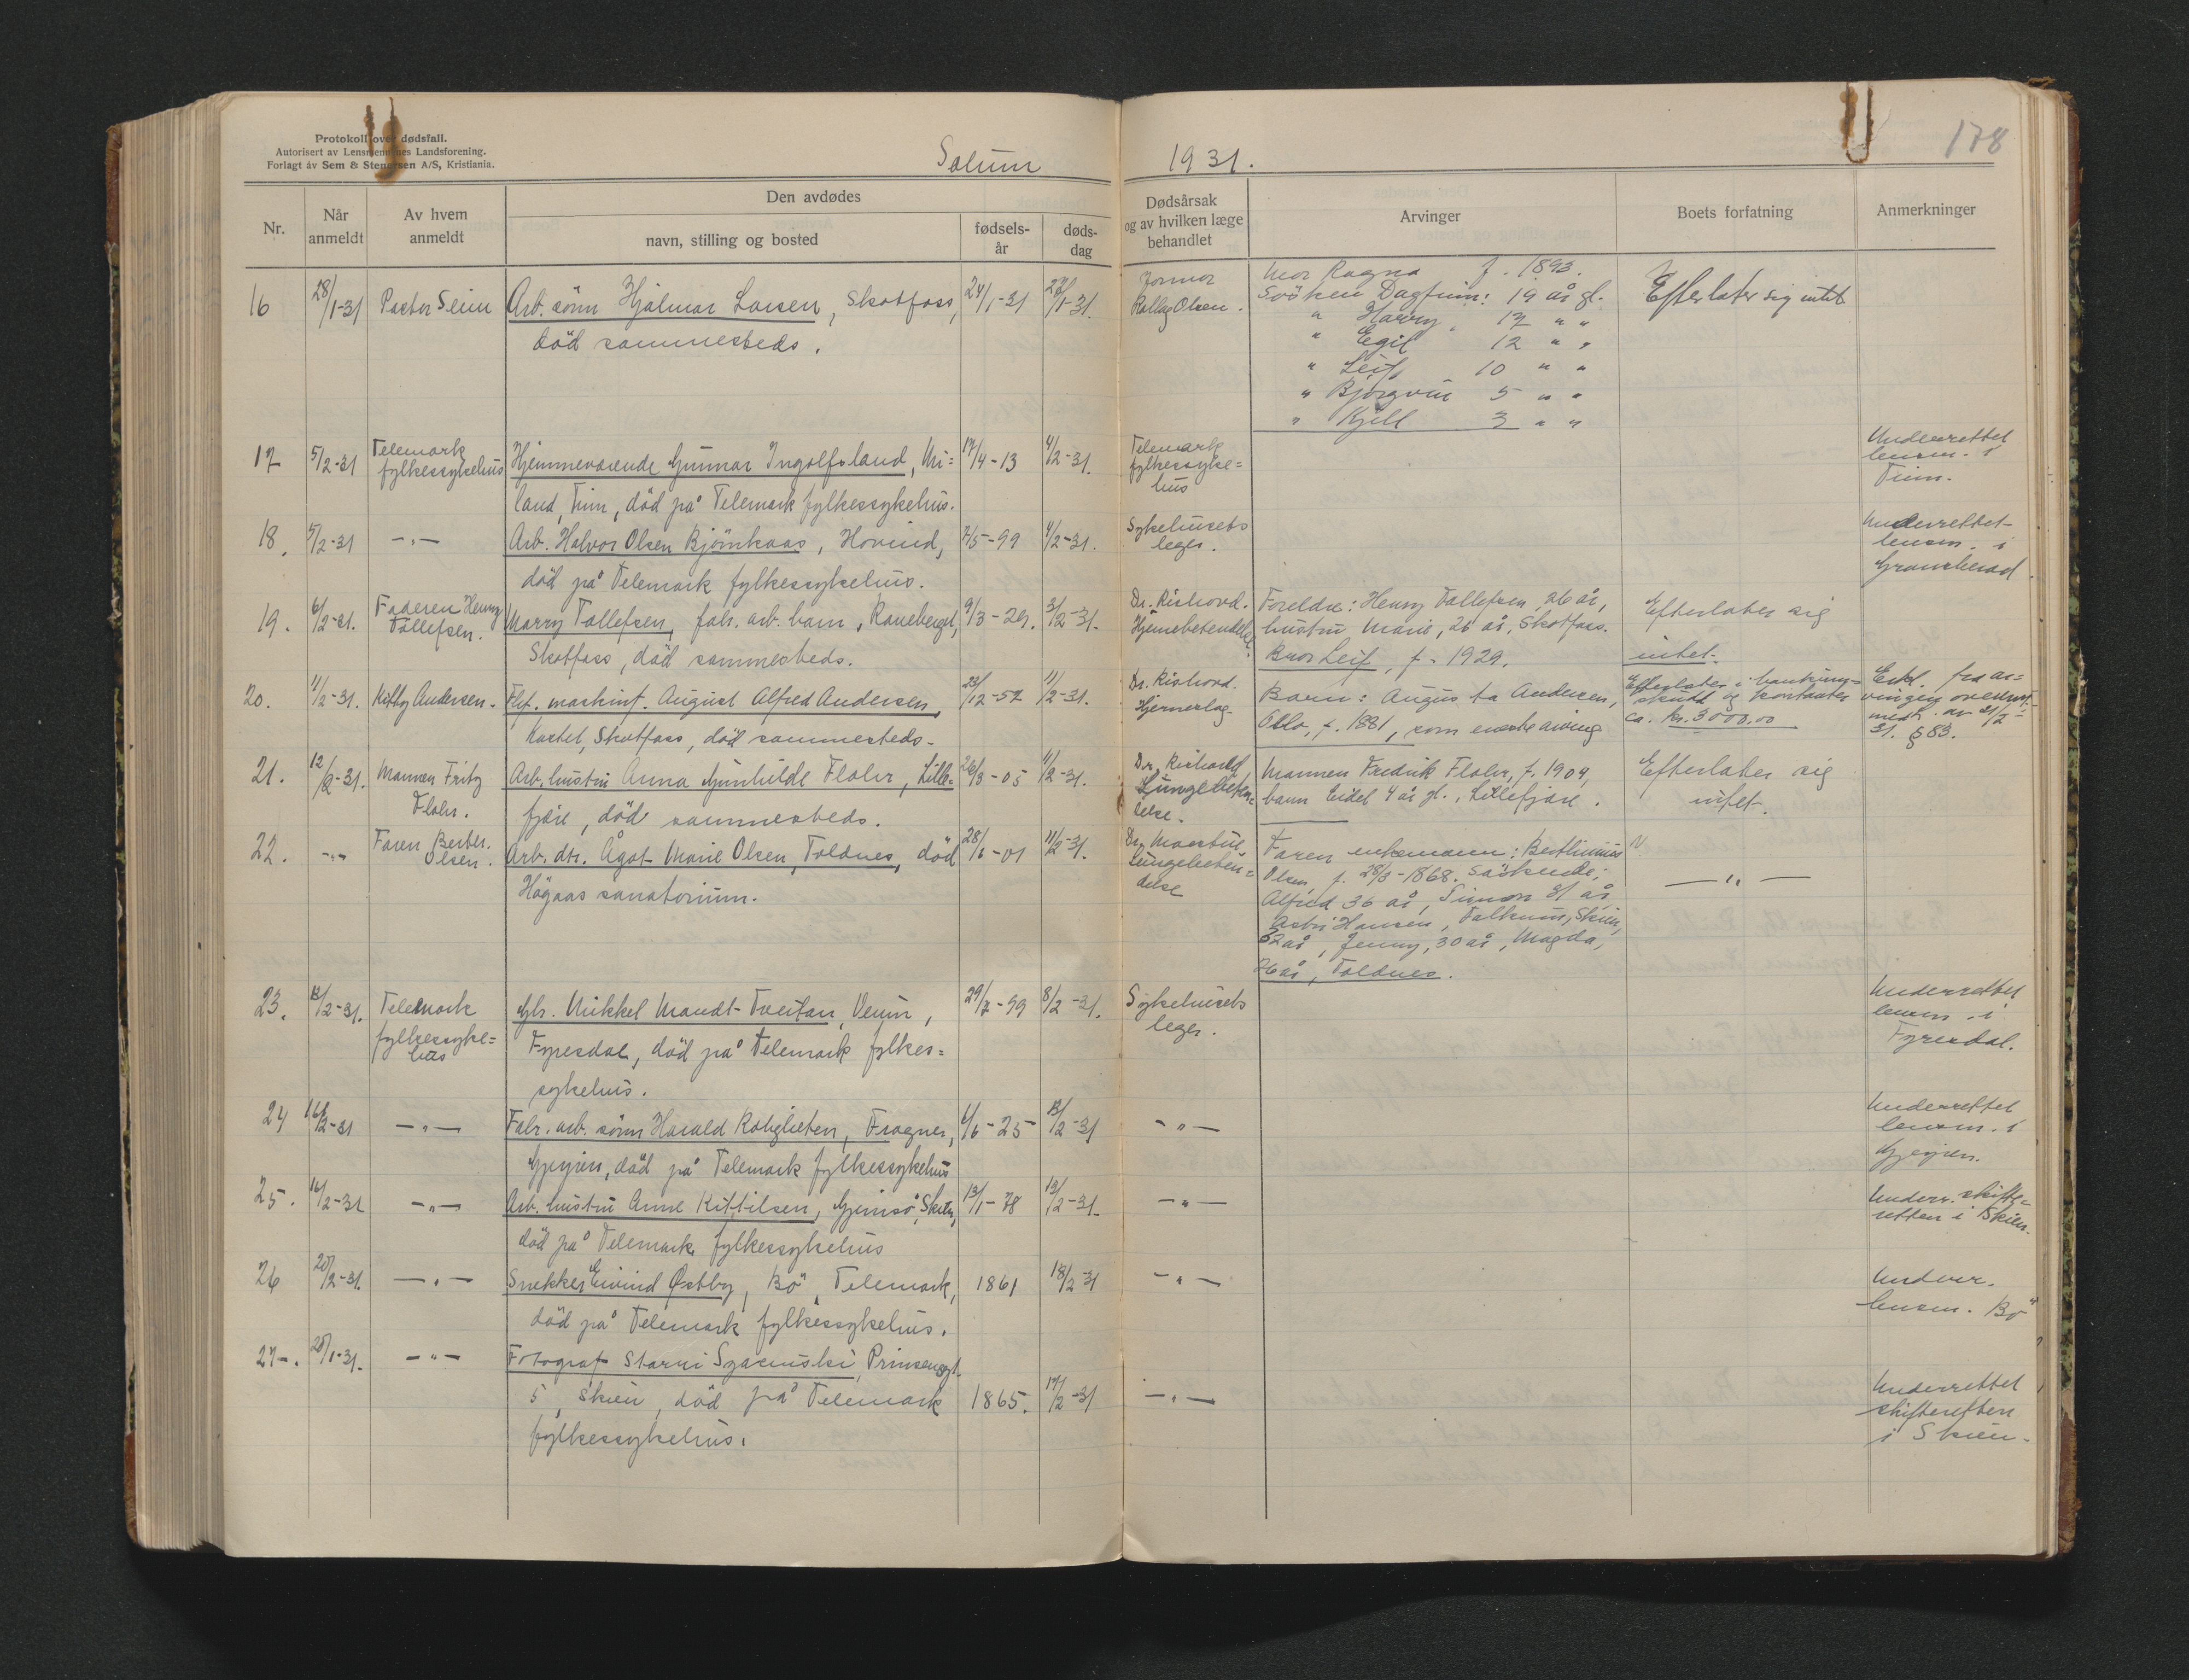 Protokoll over dødsfall.
Autorisert av Lensmennenes Landsforening.
Forlagt av Sem & Stenersen A/S, Kristiania.
Solum 1931.
178
Nr.
Når anmeldt
Av hvem anmeldt
Den avdødes
navn, stilling og bosted
fødsels-år
døds-dag
Dødsårsak og av hvilken læge behandlet
Arvinger
Boets forfatning
Anmerkninger
16 28/1-31 Pastor Seim Arb. sönn Hjalmar Larsen, Skotfoss, 24/1-31 27/1-31.
död sammesteds.
Jormor
Rallag Olsen.
Mor Ragna f. 1893.
Søsken Dagfinn: 19 år gl.
" Harry, 17 " "
" Egil 12 " "
" Leif 10 " "
" Bjørgvin 5 " "
" Kjell 3 " "
Efterlater sig intet
17 5/2-31 Telemark fylkessykehus Hjemmeværende Gunnar Ingolfsland, Mi=
land, Tinn, död på Telemark fylkessykehus.
17/4-13 4/2-31.
Telemark
fylkessyke=
hus
Underrettet
lensm. i
Tinn.
18. 5/2-31 -"- Arb. Halvor Olsen Bjömkaas, Hovind, 7/5-99 4/2-31.
död på Telemark fylkessykehus.
Sykehusets
leger.
Underrettet
lensm. i
Gransherad
19. 6/2-31. Faderen Henry Tollefsen. Marry Tollefsen, fabr. arb. barn, Raneberget, 9/3-29. 3/2-31.
Skotfoss, död sammesteds.
Dr. Rishovd.
Hjernebetendelse.
Foreldre: Henry Tollefsen, 26 år,
hustru Marie, 26 år, Skotfoss.
Bror Leif, f. 1929.
Efterlater sig
intet.
20. 11/2-31. Kitty Andersen. Flef. maskinf. August Alfred Andersen, 23/12-52 11/2-31.
Kastet, Skotfoss, död sammesteds.
Dr. Rishovd.
Hjerneslag.
Barn: Augusta Andersen,
Oslo, f. 1881, som eneste arving
Efterlater i bankinng=
skudd og kontanter
ca. kr. 3000.00
Erkl. fra ar=
vingen
31. § 83.
21. 12/2-31. Mannen Fritz Flohr. Arb. hustru Anna Gunhilde Flohr, Lille=
fjære, död sammesteds.
26/3-05 11/2-31.
Dr. Rishovd,
Lungebeten=
delse.
Mannen Fredrik Flohr, f. 1904,
barn Eidel 4 år gl., Lillefjære.
Efterlater sig
intet.
22. -"- Faren Berber. Olsen. Arb. dtr. Ågot Marie Olsen, Toldnes, död 28/1-01 11/2-31.
Högaas sanatorium.
Dr. Maartin
Lungebeten=
delse
Faren enkemann: Berthinius
Olsen, f. 28/3-1868. Søskende:
Alfred 36 år, Simon 31 år,
Astri Hansen, Falkum, Skien,
32 år, Jenny, 30 år, Magda,
26 år, Toldnes.
-"-
23. 13/2-31. Telemark fylkessyke=hus Gbr. Mikkel Mandt-Tveitan, Veum, 29/7-99 8/2-31.
Fyresdal, död på Telemark fylkes=
sykehus.
Sykehusets
leger.
Underrettet
lensm. i
Fyresdal.
24 16/2-31 -"- Fabr. arb. sönn Harald Roligheten, Frogner, 6/6-25 13/2-31
Gjerpen, död på Telemark fylkessykehus
-"-
Underrettet
lensm. i
Gjerpen.
25. 16/2-31 -"- Arb. hustru Anne Kittilsen, Gjemsö, Skien, 13/1-78 13/2-31
död på Telemark fylkessykehus
-"-
Underr. skifte=
retten i Skien.
26 20/2-31. -"- Snekker Eivind Østby, Bö, Telemark, 1861 18/2-31
död på Telemark fylkessykehus.
-"-
Underr.
lensm. Bö
27. 20/1-31. -"- Fotograf Starri Szacinski, Prinsensgt.
5, Skien, död på Telemark 1865. 17/2-31
fylkessykehus.
-"-
Underrettet
skifteretten
i Skien.